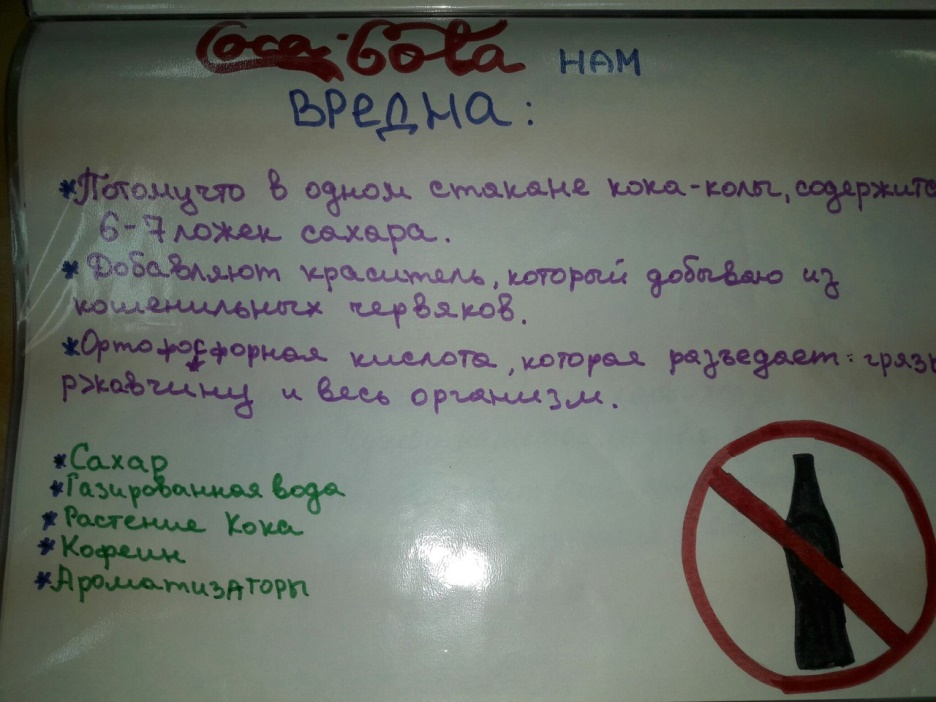 Coca-Cola НАМ
ВРЕДНА:
*Потомучто в одном стакане кока-колы, содержитс
6-7 ложек сахара.
*Добавляют краситель, который добываю из
кошенильных червяков.
*Ортофосфорная кислота, которая разъедает: грязь
ржавчину и весь организм.
*Сахар
*Газированная вода
*Растение Кока
*Кофеин
*Ароматизаторы